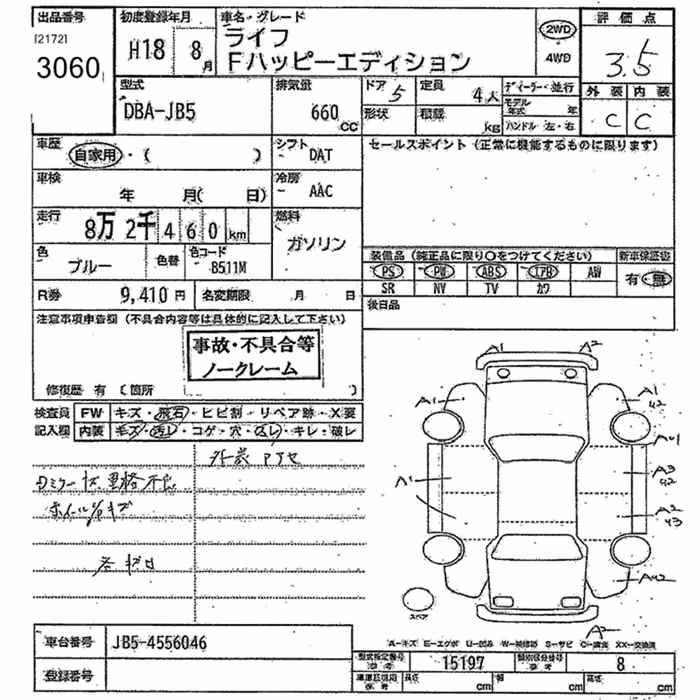 出品番号
[2172]
3060
初度登録年月
H18 8月
車名・グレード
ライフ
Fハッピーエディション
2WD
4WD
評価点
3.5
外装 内装
C C
型式
DBA-JB5
排気量
660 cc
ドア 5
定員 4人
形状
積載 kg
ディーラー・並行
モデル年式 年
ハンドル 左・右
車歴
自家用・( )
シフト
DAT
セールスポイント(正常に機能するものに限ります)
車検
年 月( 日)
冷房
AAC
走行
8万2千460km
燃料
ガソリン
色
ブルー
色替
色コード
B511M
装備品(純正品に限り○をつけてください)
新車保証書
PS PW ABS エアB AW
有・無
SR NV TV カワ
R券
9,410円
名変期限 月 日
後日品
注意事項申告欄(不具合内容等は具体的に記入して下さい)
事故・不具合等
ノークレーム
修復歴 有 (箇所 )
検査員
記入欄
FW キズ・飛石・ヒビ割・リペア跡・X要
内装 キズ・汚レ・コゲ・穴・スレ・キレ・破レ
A1 A2
A1 A1
42
A1
A2
43
スペア
A-キズ E-エクボ U-凹み W-補修跡 S-サビ C-腐食 XX-交換済
車台番号
JB5-4556046
登録番号
型式指定番号
参考
15197
類別区分番号
参考
8
車庫証明用
参考
長さ cm
幅 cm
高さ cm